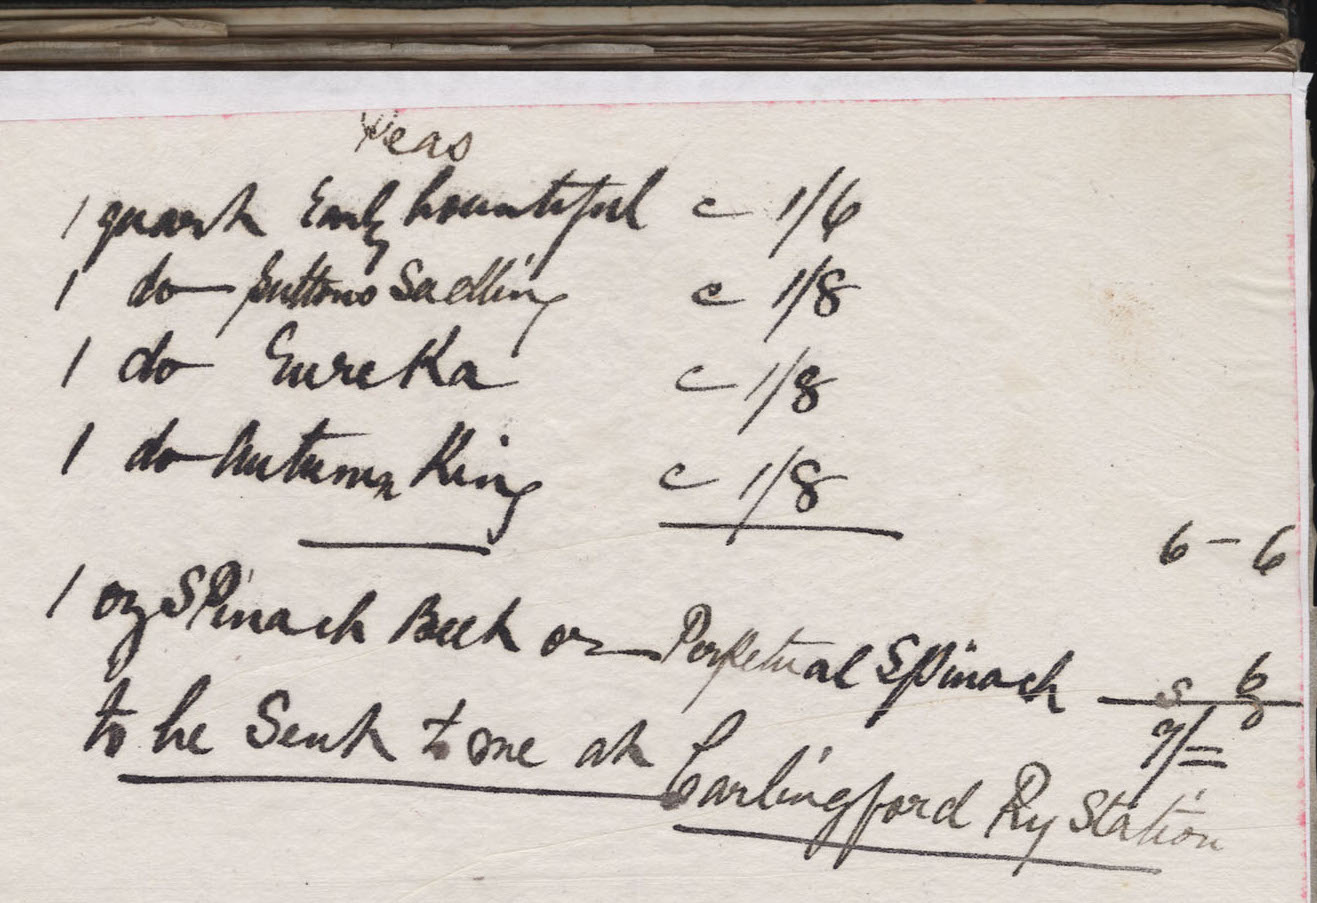 Peas
1 quart Early bountiful c 1/6
1 do - Suttons Sedling c 1/8
1 do Eureka c 1/8
1 do Autumn King c 1/8
6 - 6
1 oz Spinach Beet or Perpetual Spinach — 6
7/=
to be Sent to me at Carlingford Ry Station